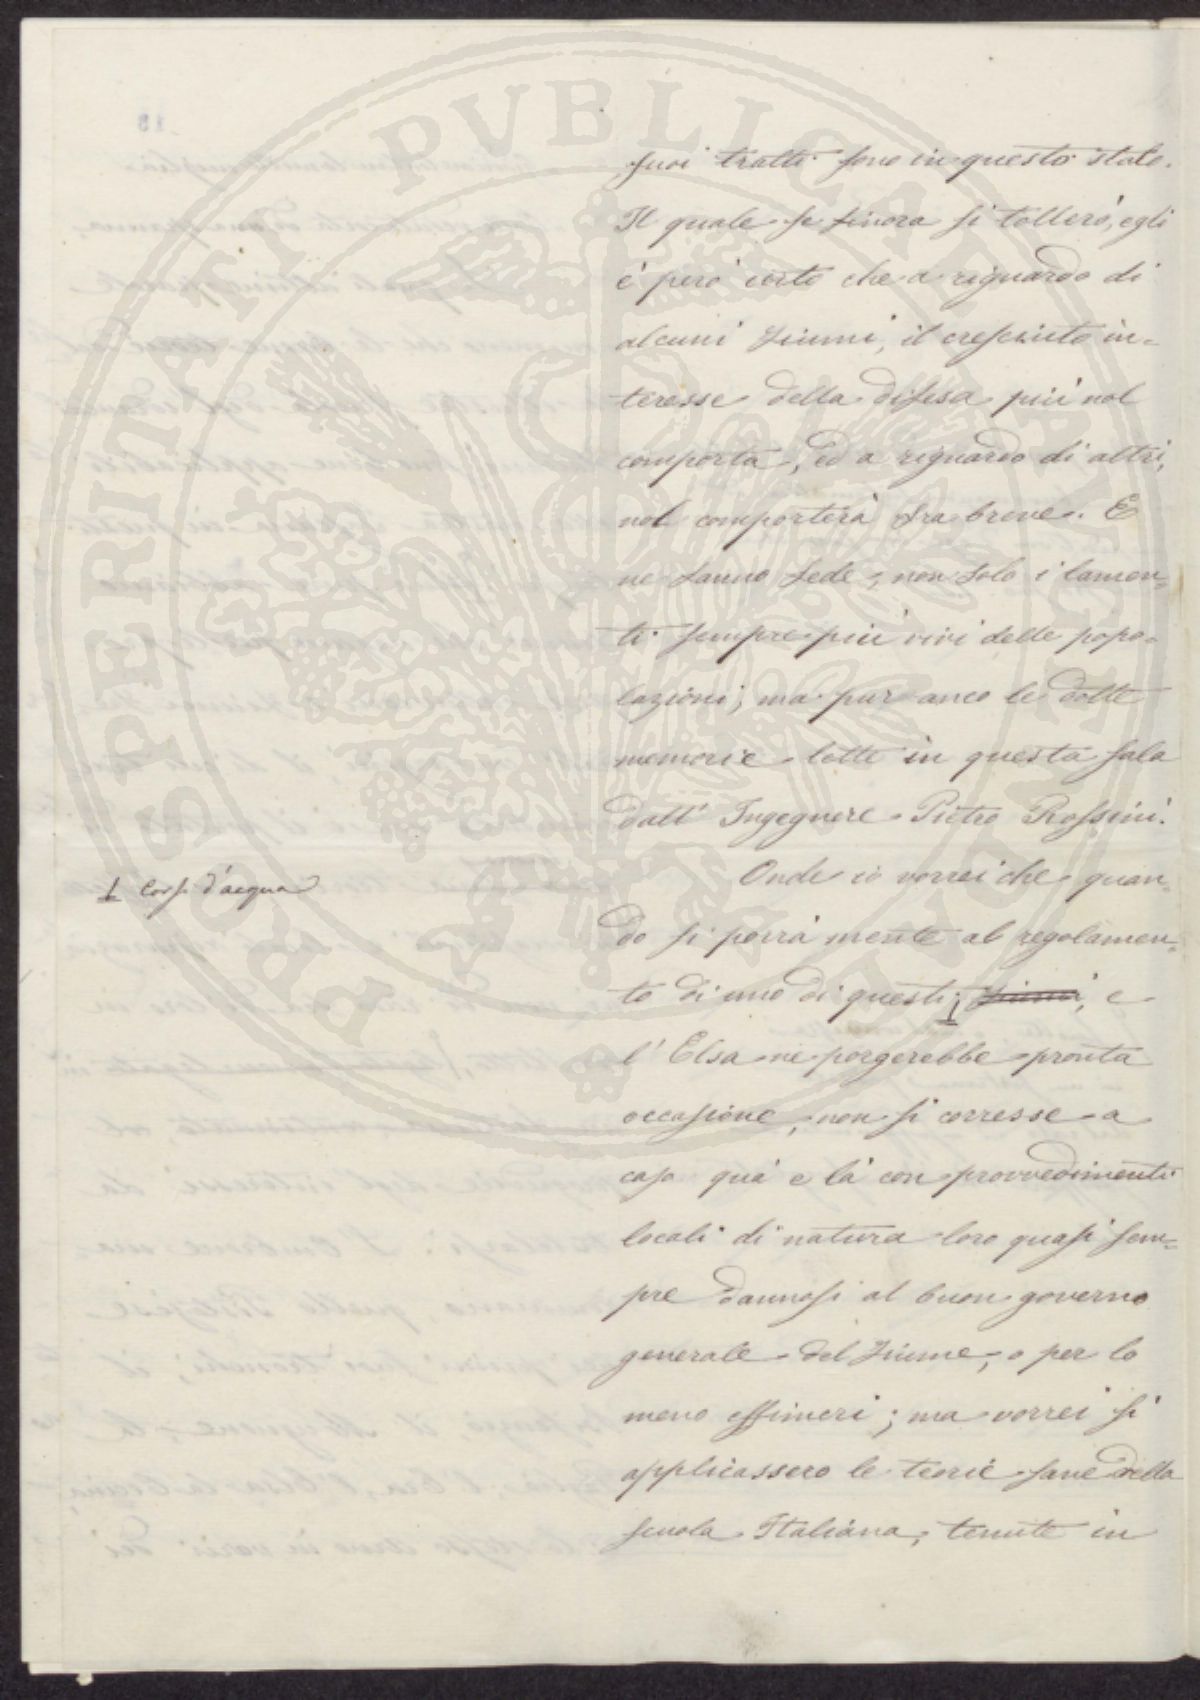 PROSPERITATI PUBLICAE AUGENDAE
suoi tratti sono in questo stato.
Il quale se finora si tollerò, egli
è però certo che a riguardo di
alcuni fiumi, il cresciuto in-
teresse della difesa più nol
comporta, ed a riguardo di altri,
nol comporterà fra breve. E
ne fanno fede, non solo i lamen-
ti sempre più vivi delle popo-
lazioni; ma pur anco le dotte
memorie lette in questa sala
dall' Ingegnere Pietro Rossini.
Onde io vorrei che quan-
do si porrà mente al regolamen-
to di uno di questi, fiumi, e
1 Corsi d'acqua
l' Elsa ne porgerebbe pronta
occasione, non si corresse a
caso quà e là con provvedimenti
locali di natura loro quasi sem-
pre dannosi al buon governo
generale del fiume, o per lo
meno effimeri; ma vorrei si
applicassero le teorie sane della
scuola Italiana, tenute in